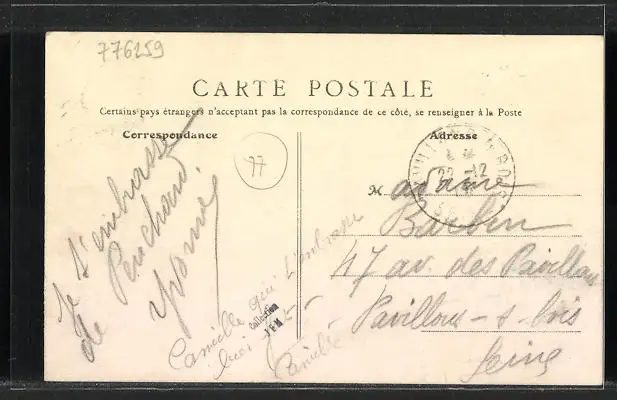 776259
CARTE POSTALE
Certains pays étrangers n'acceptant pas la correspondance de ce côté, se renseigner à la Poste
Correspondance
Adresse
77
Je t'embrasse
de Penchard
Yvonne
Camille qui t'embrasse
Camille
Collection
J.F.M
22 -12
Madame
Barbin
47 av. des Pavillons
Pavillons-s-bois
Seine